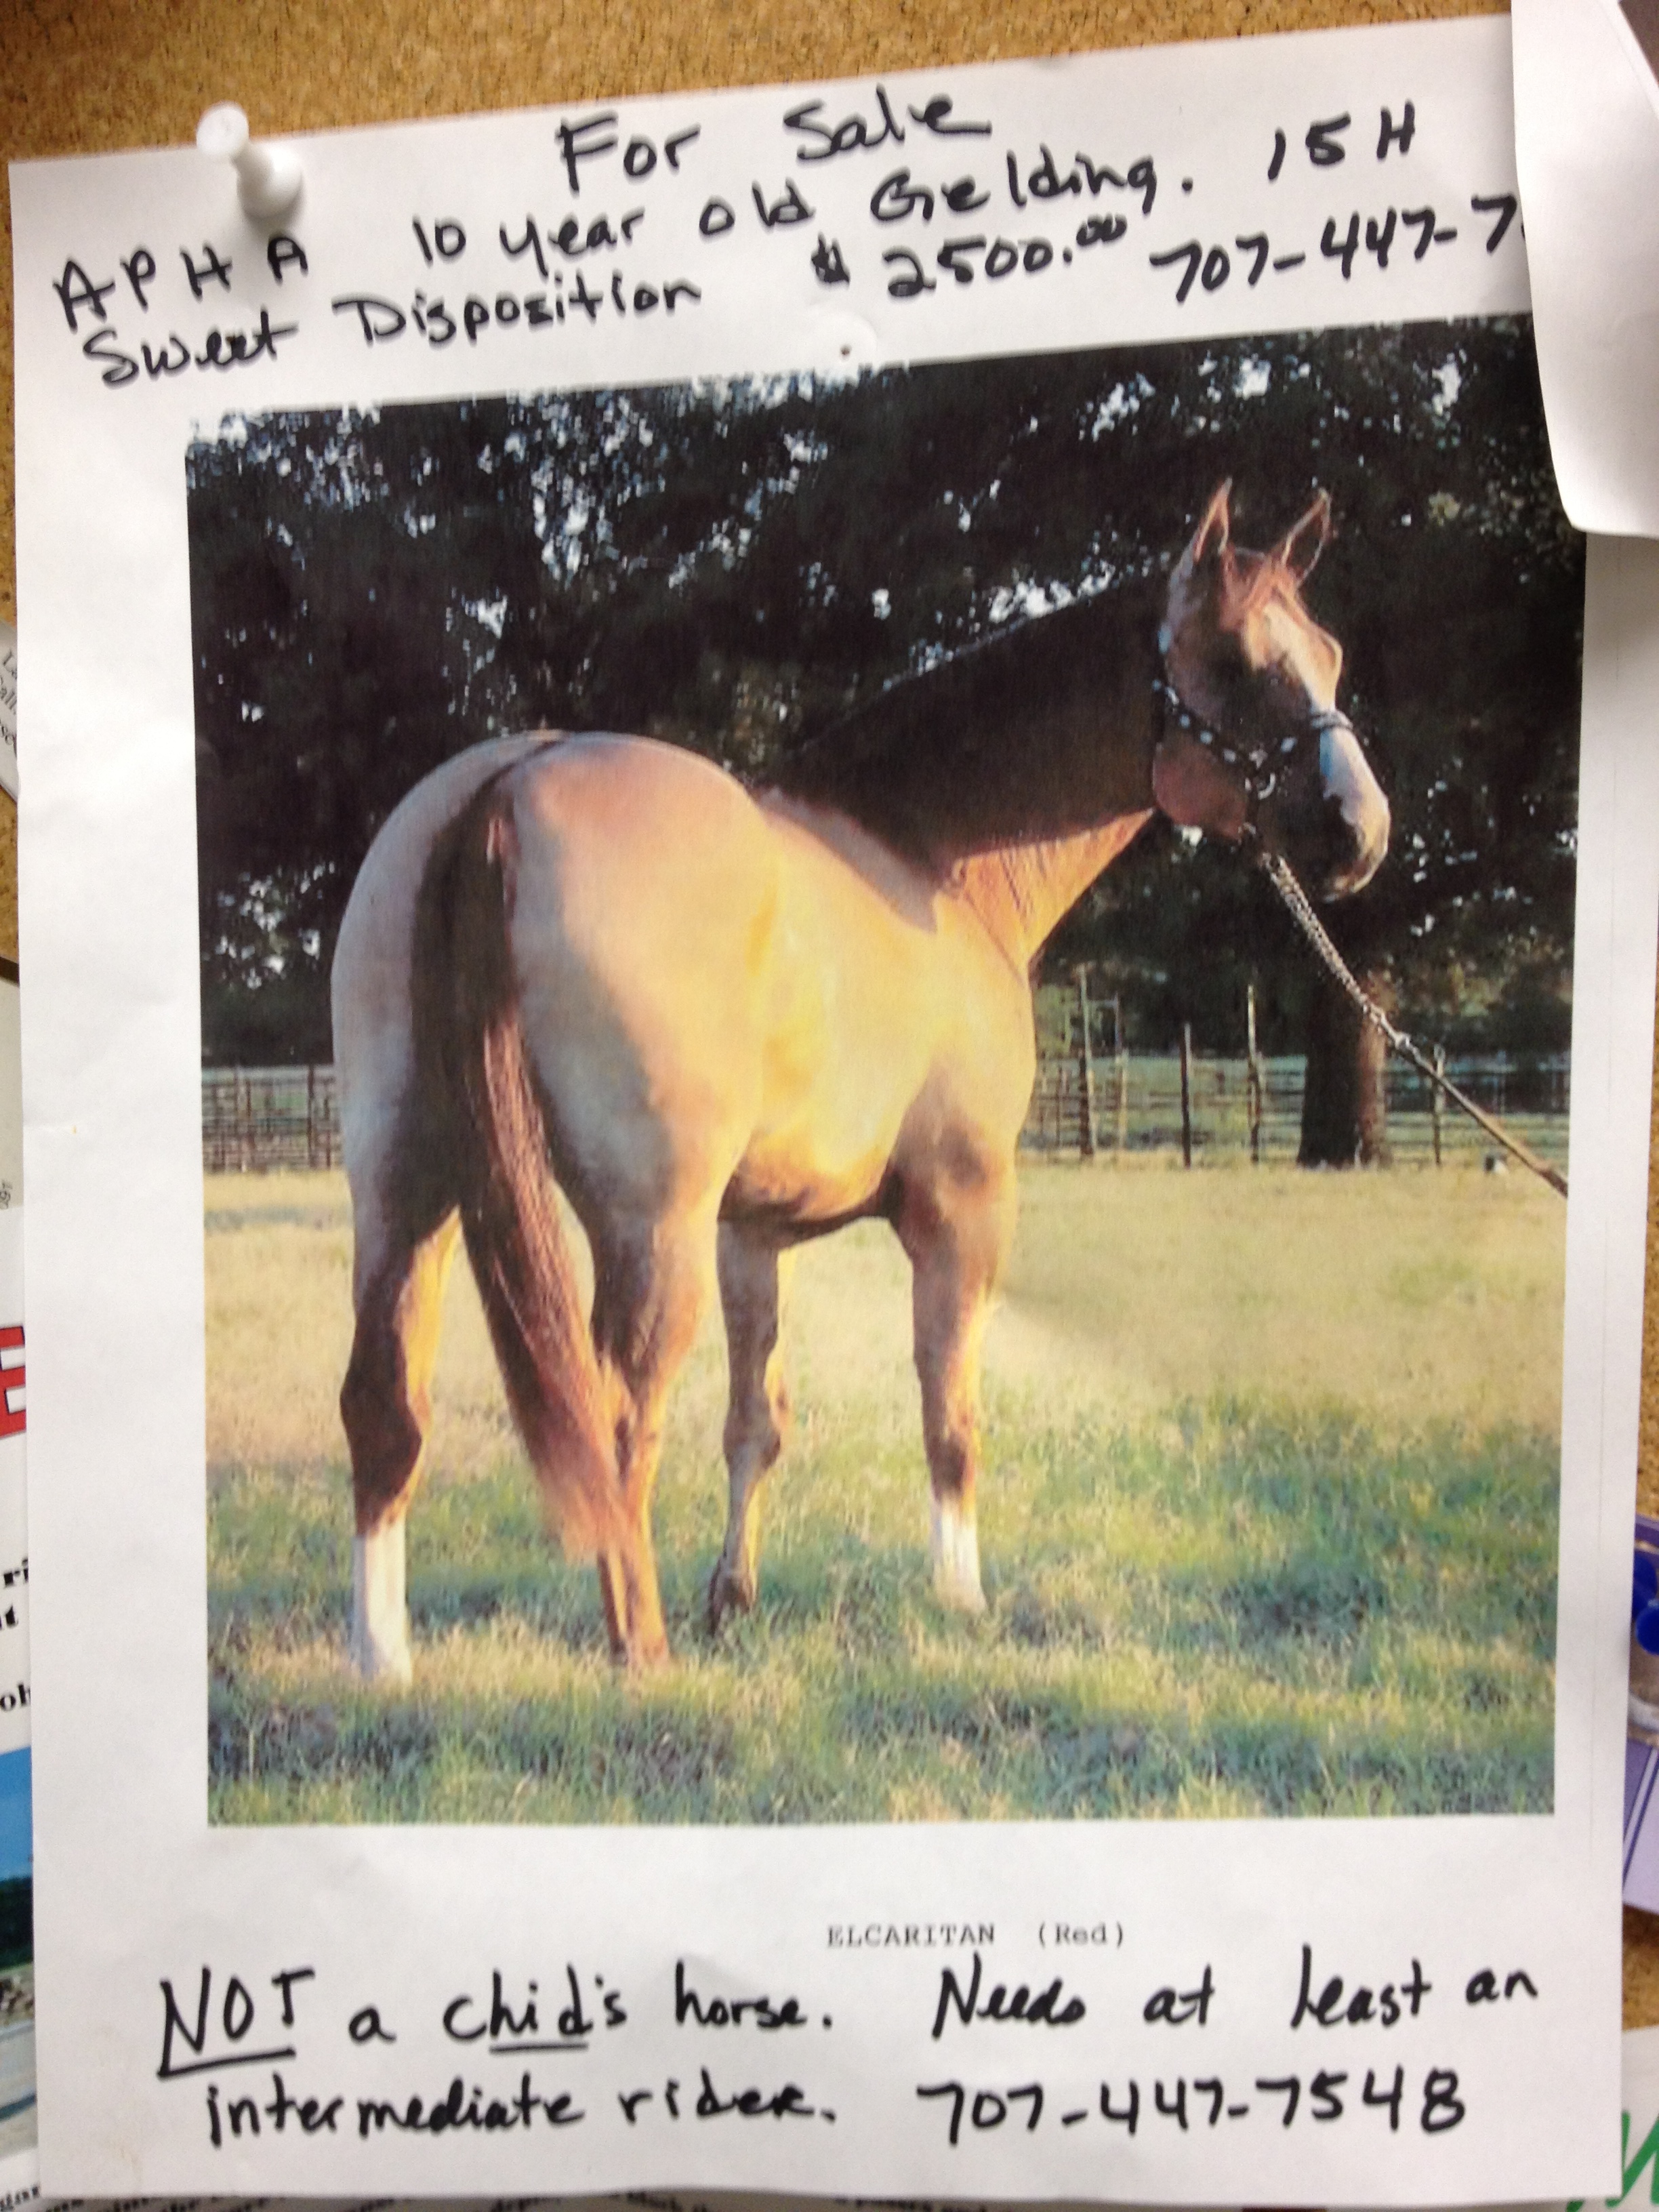 For Sale
APHA 10 year old Gelding. 15 H
Sweet Disposition $2500.00 707-447-7
ELCARITAN (Red)
NOT a chid's horse. Needs at least an
intermediate rider. 707-447-7548
E